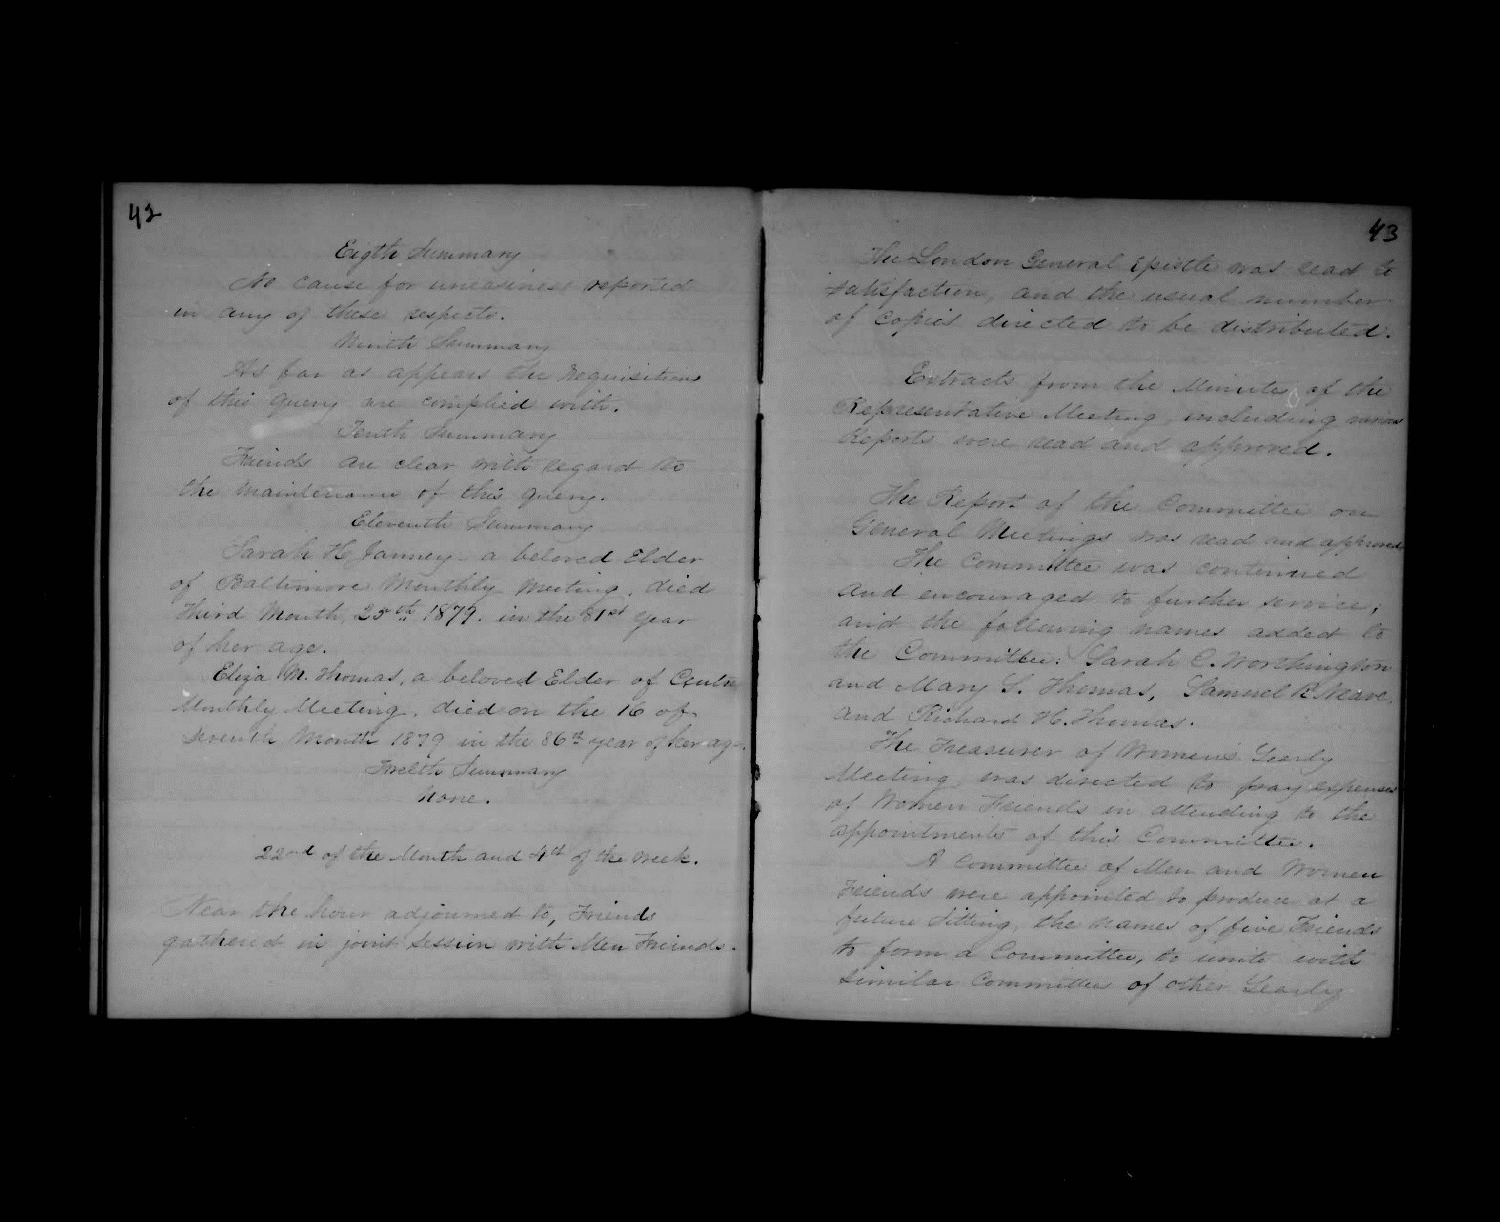 42
Eigth Summary
No cause for uneasiness reported
in any of these respects.
Ninth Summary
As far as appears the requisitions
of this query are complied with.
Tenth Summary
Friends are clear with regard to
the maintenance of this query.
Eleventh Summary
Sarah H Janney a beloved Elder
of Baltimore Monthly Meeting, died
Third Month, 25th 1879. in the 81st year
of her age.
Eliza M. Thomas, a beloved Elder of Centre
Monthly Meeting, died on the 16 of
Seventh Month 1879 in the 86th year of her age
Twelth Summary
None.
22nd of the Month and 4th of the week.
Near the hour adjourned to, Friends
gathered in joint Session with Men Friends.
43
The London General Epistle was read to
satisfaction, and the usual number
of Copies directed to be distributed.
Extracts from the Minutes of the
Representative Meeting, including various
Reports were read and approved.
The Report of the Committee on
General Meetings was read and approved
The Committee was continued
and encouraged to further service,
and the following names added to
the Committee: Sarah C. Worthington
and Mary S. Thomas, Samuel R. Neave,
and Richard H. Thomas.
The Treasurer of Women's Yearly
Meeting was directed to pay expenses
of Women Friends in attending to the
appointments of this Committee.
A Committee of Men and Women
Friends were appointed to produce at a
future sitting, the names of five Friends
to form a Committee, to unite with
similar Committees of other Yearly